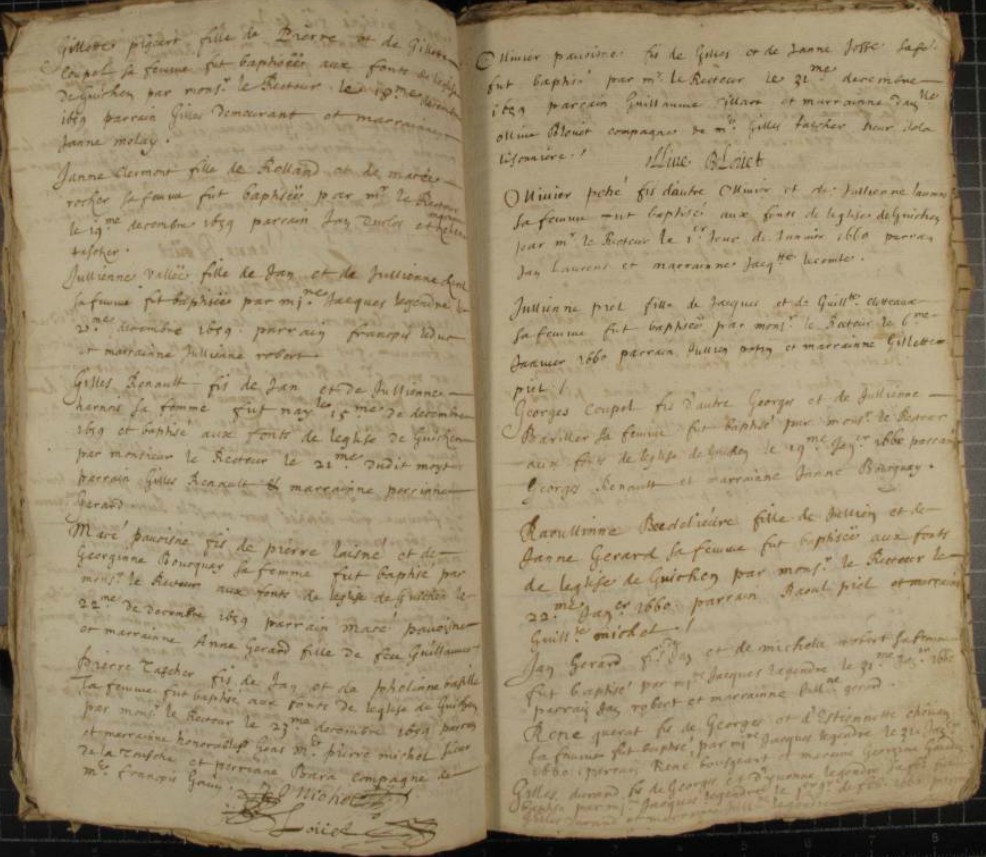 Gillette pigart fille de Pierre et de Gillette
Coupel sa femme fut baptiséé aux fonts de leglise
de Guichen par monsr le Recteur le 18me decembre
1659 parrain Gilles Demeurant et marrainne
Janne molay.
Janne Clermont fille de Rolland et de marie
rocher sa femme fut baptiséé par mr le Recteur
le 19me decembre 1659 parrain Jan Duclos et
tascher.
Jullienne Valléé fille de Jan et de Jullienne
sa femme fut baptiséé par mire Jacques legendre le
decembre 1659 parrain françois leduc
et marrainne Jullienne robert
Gilles Renault fis de Jan et de Jullienne
harnois sa femme fut nay le 15me de decembre
1659 et baptisé aux fonts de leglise de Guichen
par monsieur le Recteur le 21me dudit moys
parrain Gilles Renault & marrainne perrinne
Gerard
Macé pavoisne fis de pierre laisné et de
Georginne Bourquay sa femme fut baptisé par
monsr le Recteur aux fonts de leglise de Guichen le
22me de decembre 1659 parrain macé pavoisne
et marrainne Anne Gerard fille de feu Guillaume
pierre Tascher fis de Jan et de
sa femme fut baptisé aux fonts de leglise de Guichen
par monsr le Recteur le 23me decembre 1659 parrin
et marrainne honorables Gens Mr pierre michel sieur
de la et perrinne Bara compagne de
mr françois
Michel
Louet
Ollivier pavoisne fis de Gilles et de Janne Josse sa fe.
fut baptisé par mr le Recteur le 31me decembre
1659 parrain Guillaume et marrainne
Ollive Blouet compagne de mr Gilles tascher sieur dela

Ollive Blouet
Ollivier pché fis dautre Ollivier et de Jullienne
sa femme fut baptisé aux fonts de leglise de Guichen
par mr le Recteur le 1er Jour de Janvier 1660 parrain
Jan Laurent et marrainne Jacqtte lecomte.
Jullienne piel fille de Jacques et de Guilltte
sa femme fut baptiséé par monsr le Recteur le 6me
Janvier 1660 parrain Jullien et marrainne Gillette
piel /
Georges Coupel fis dautre Georges et de Jullienne
Bariller sa femme fut baptisé par monsr le Recteur
aux fonts de leglise de Guichen le 19me Janer 1660 parrain
Georges Renault et marrainne Janne Bourquay.
Raoullinne Bedeliévre fille de Jullien et de
Janne Gerard sa femme fut baptiséé aux fonts
de leglise de Guichen par monsr le Recteur le
22me Janer 1660 parrain Raoul piel et marrain
Guilltte michel /
Jan Gerard fis Jan et de michelle robert sa femme
fut baptisé par mire Jacques legendre le 31me Janer 1660
perrain Jan robert et marrainne Jullne gerard.
René querat fis de Georges et d'Estiennette
sa femme fut baptisé par mire Jacques legendre le 31 Janer
1660 perrain René et maraine Georgine
Gilles durand fis de Georges et d'yvonne legendre sa fe. fut
baptisé par mire Jacques legendre le per de feb. 1660
Gilles durand et marrainne legendre